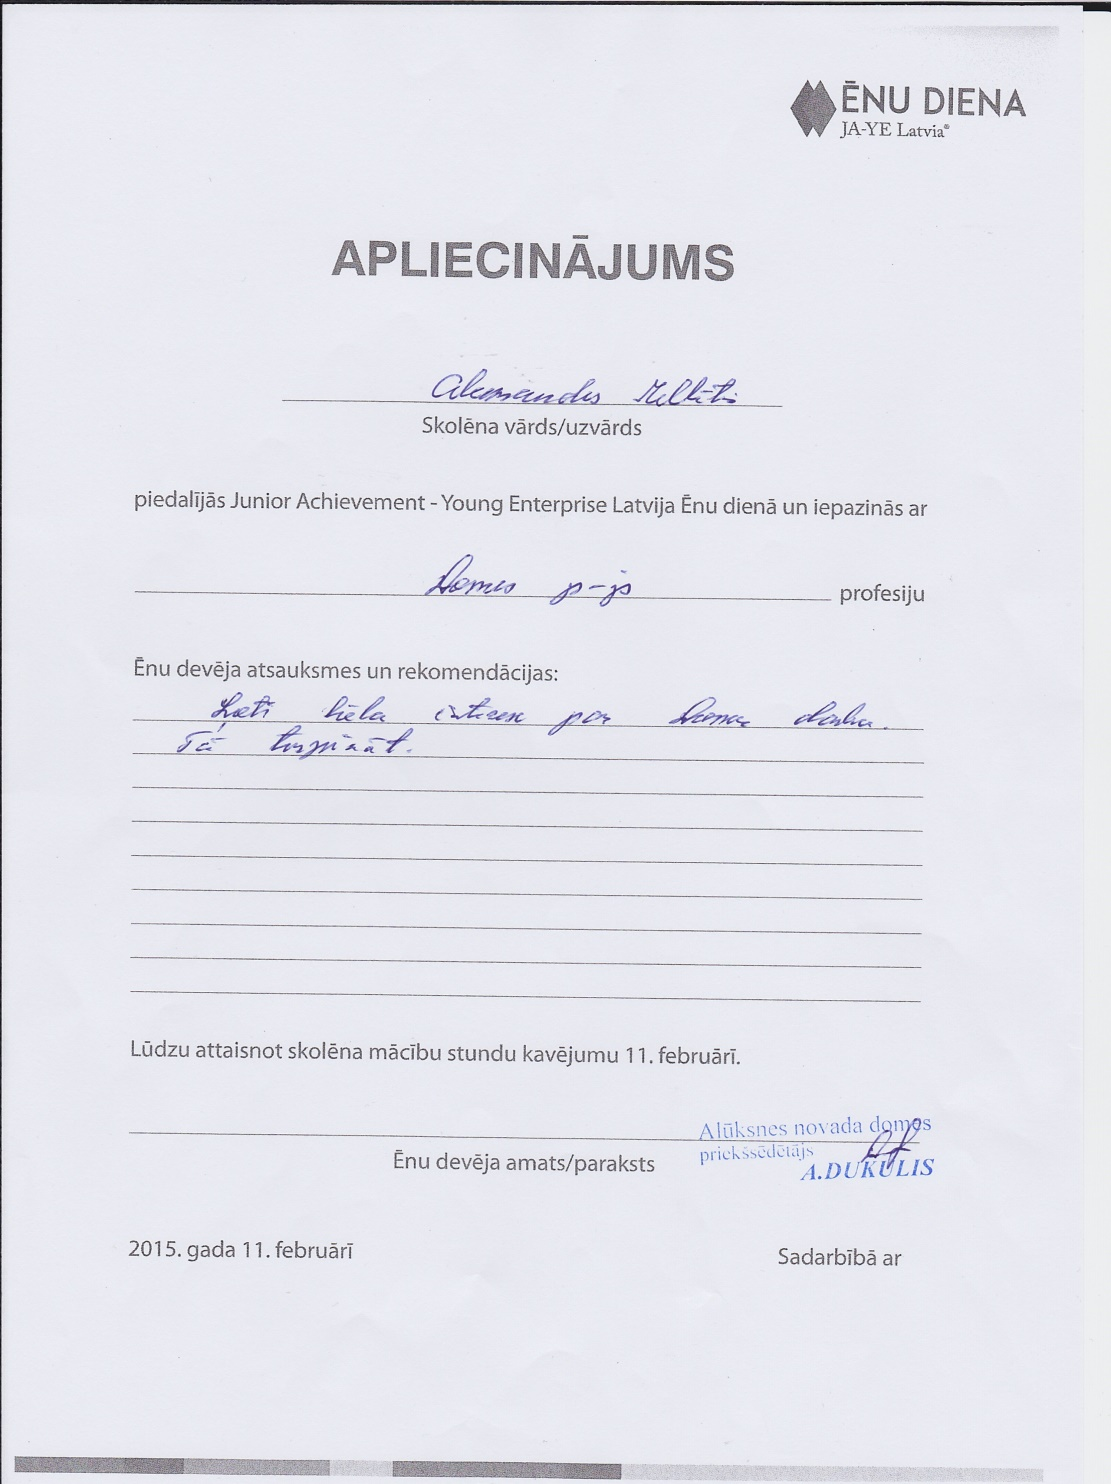 ĒNU DIENA
JA-YE Latvia®
APLIECINĀJUMS
Skolēna vārds/uzvārds
piedalījās Junior Achievement - Young Enterprise Latvija Ēnu dienā un iepazinās ar
Domes p-js profesiju
Ēnu devēja atsauksmes un rekomendācijas:
Ļoti liela interese par Domes darbu.
Tā turpināt.
Lūdzu attaisnot skolēna mācību stundu kavējumu 11. februārī.
Alūksnes novada domes
priekšsēdētājs
Ēnu devēja amats/paraksts
A.DUKULIS
2015. gada 11. februārī
Sadarbībā ar